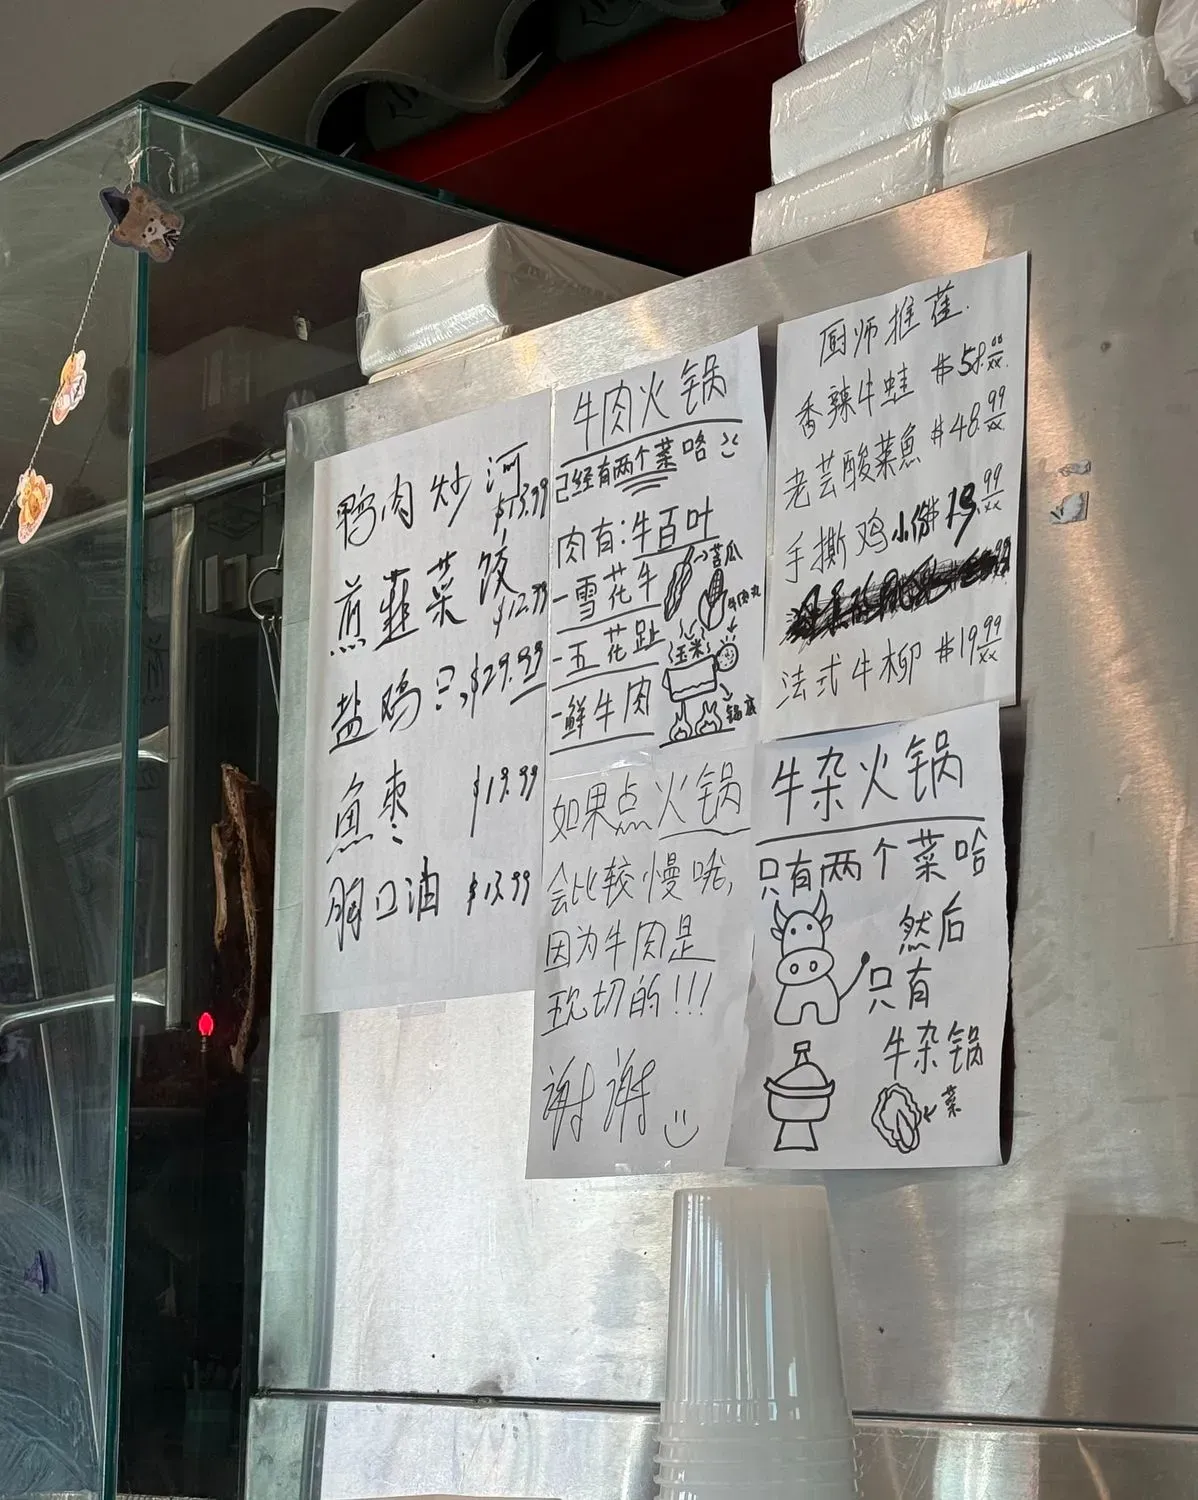 鸭肉炒河
$13.99
煎韮菜饺
$12.99
盐鸡 $29.99
魚枣 $19.99
胸口油 $13.99
牛肉火锅
己经有两个菜咯
肉有:牛百吐
-雪花牛
-五花趾
-鲜牛肉
→苦瓜
牛肉丸
玉米
锅底
如果点火锅
会比较慢哦,
因为牛肉是
现切的!!!
谢谢
厨师推荐.
香辣牛蛙 $58.
老芸酸菜魚 $48.99
手撕鸡 19.99
法式牛柳 $19.99
牛杂火锅
只有两个菜哈
然后
只有
牛杂锅
菜